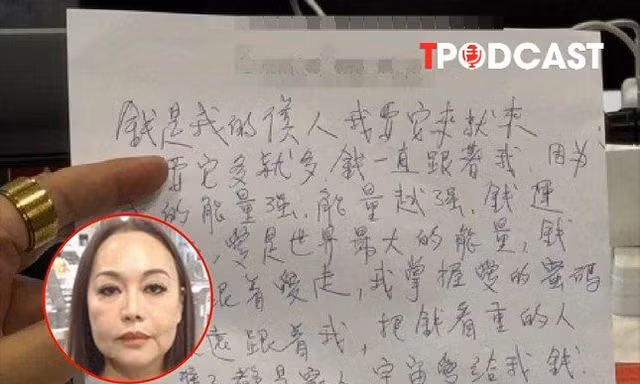 TPODCAST
錢是我的僕人 我要它來就來
要它多就多,錢一直跟著我,因为
的能量强,能量越强,錢運
愛是世界最大的能量,錢
跟着愛走,我掌握愛的蜜碼
遠跟着我,把錢看重的人
都是窮人 宇宙會給我錢